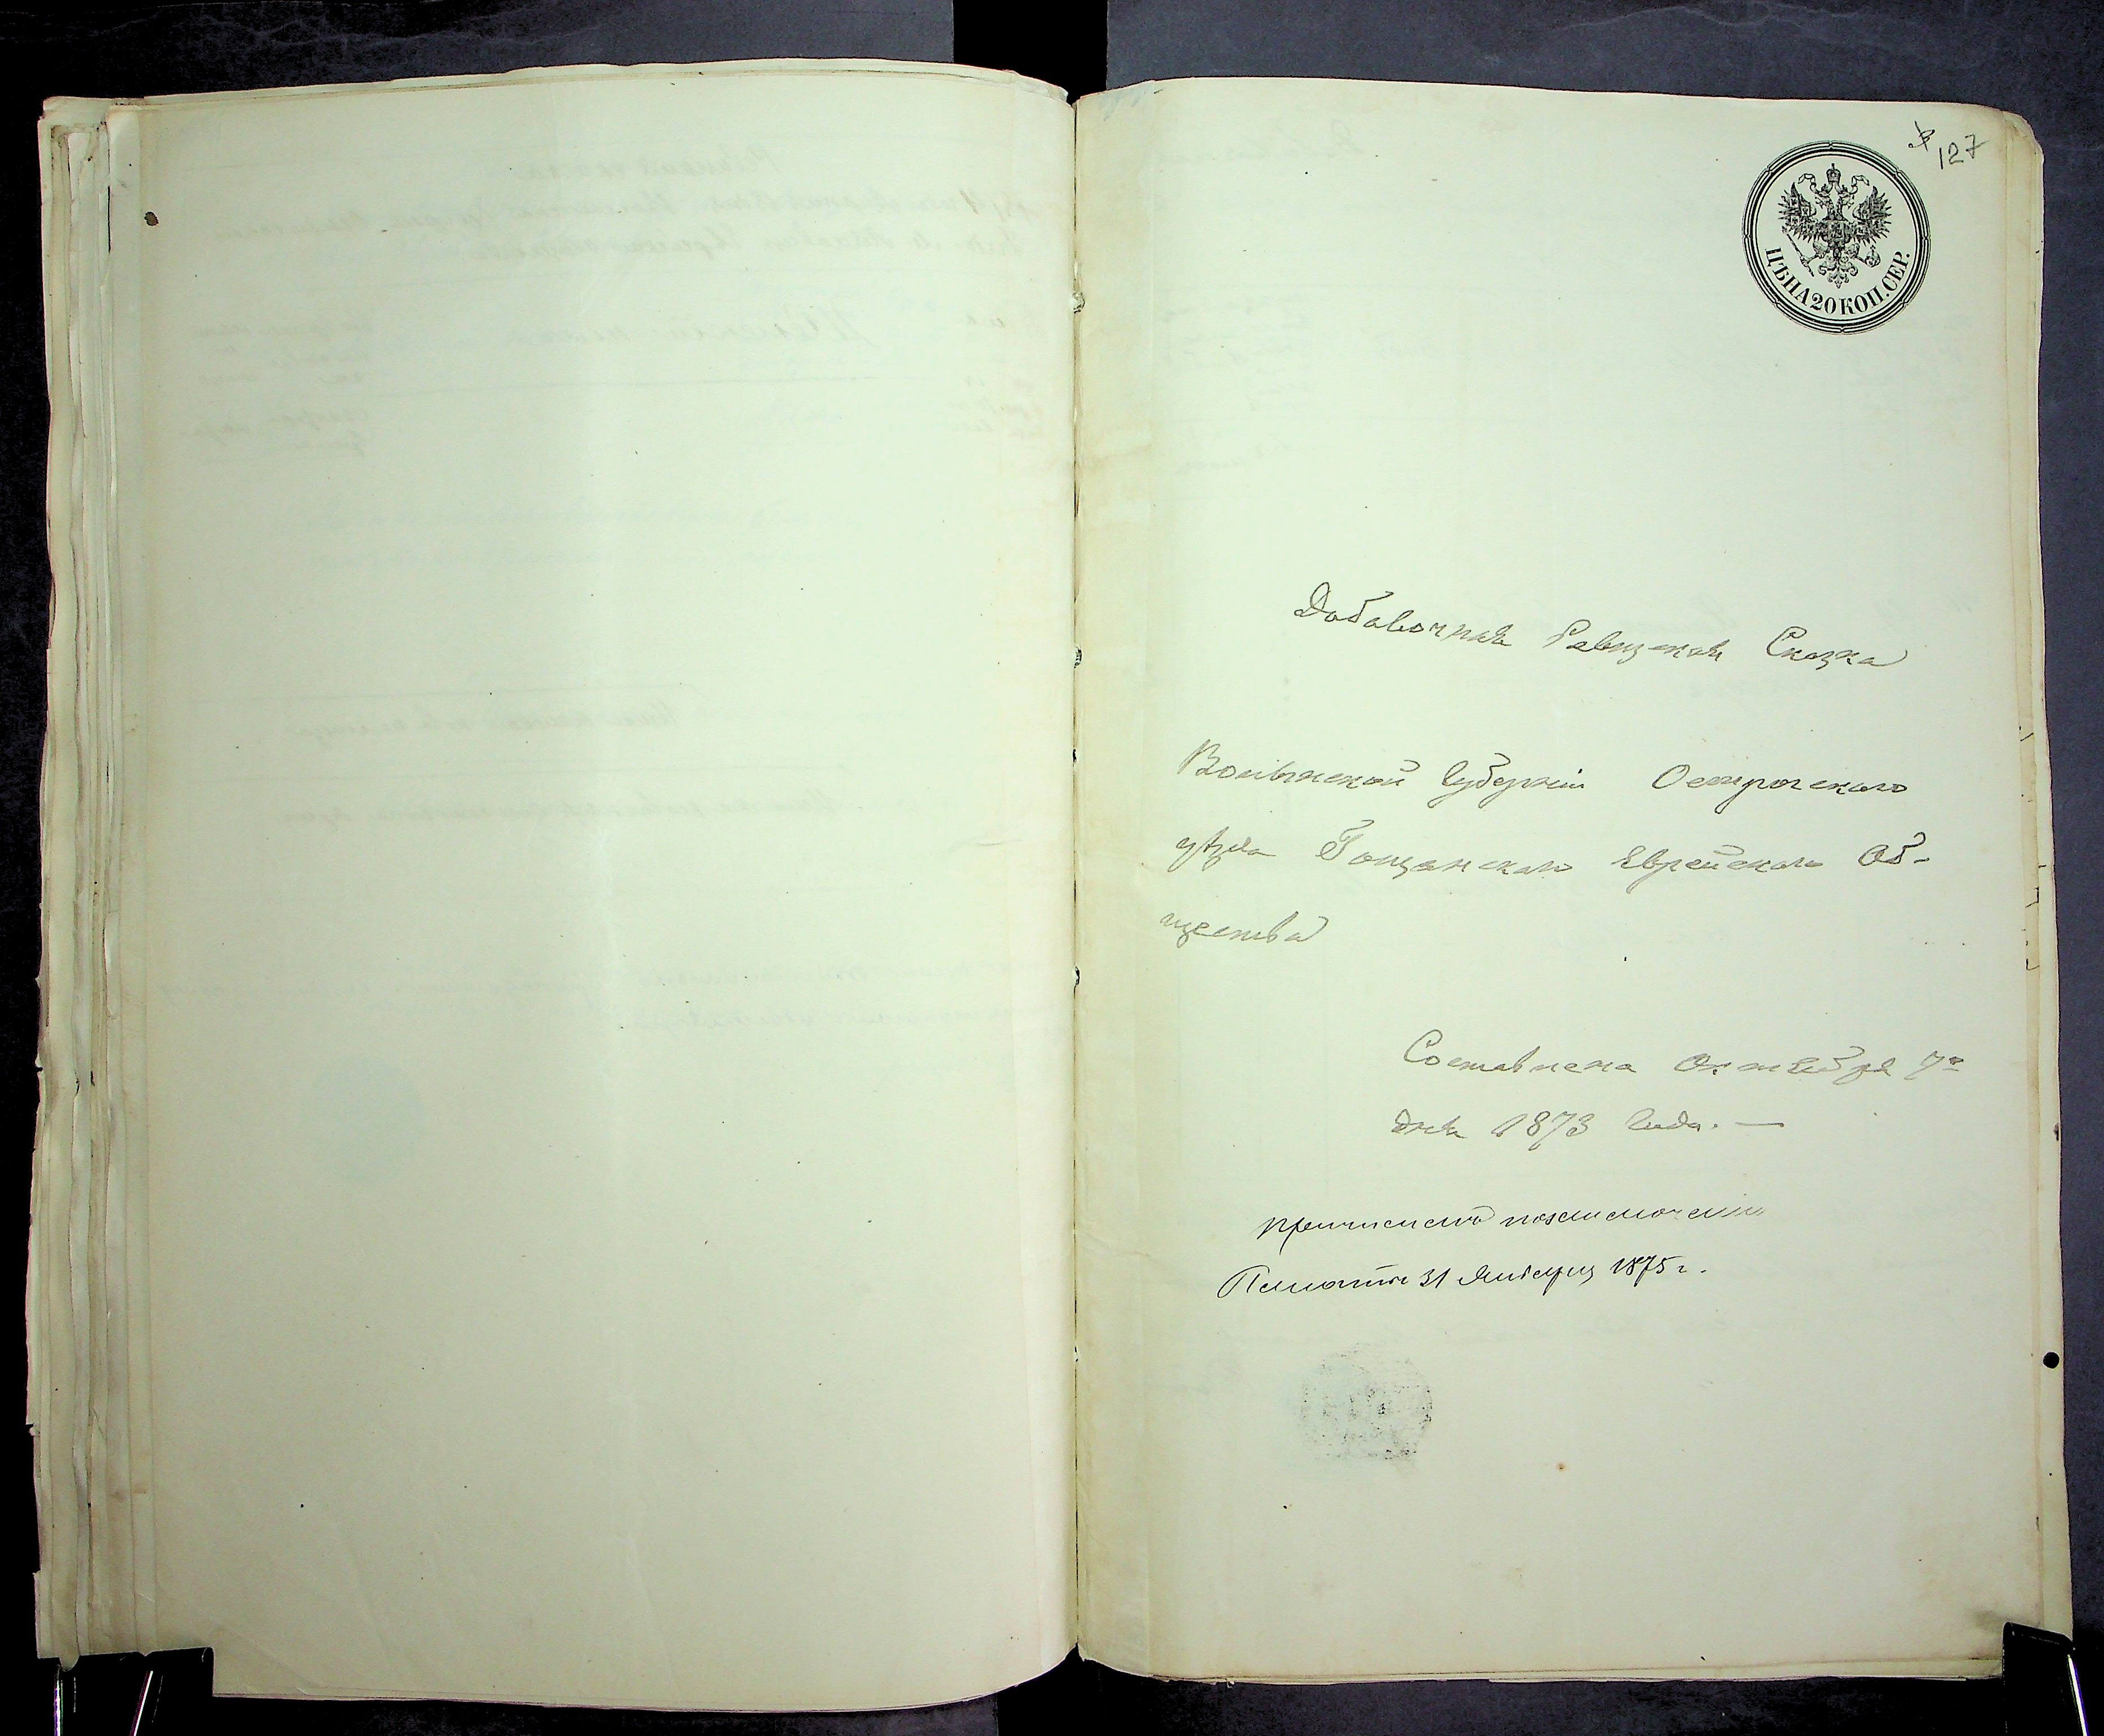 127
ЦѢНА 20 КОП. СЕР.
Добавочная Ревизская Сказка
Волынской Губерніи Острогскаго
уѣзда Гощанскаго Еврейскаго Об-
щества
Составлена Октября 7го
дня 1873 Года. —
31 Января 1875 г.